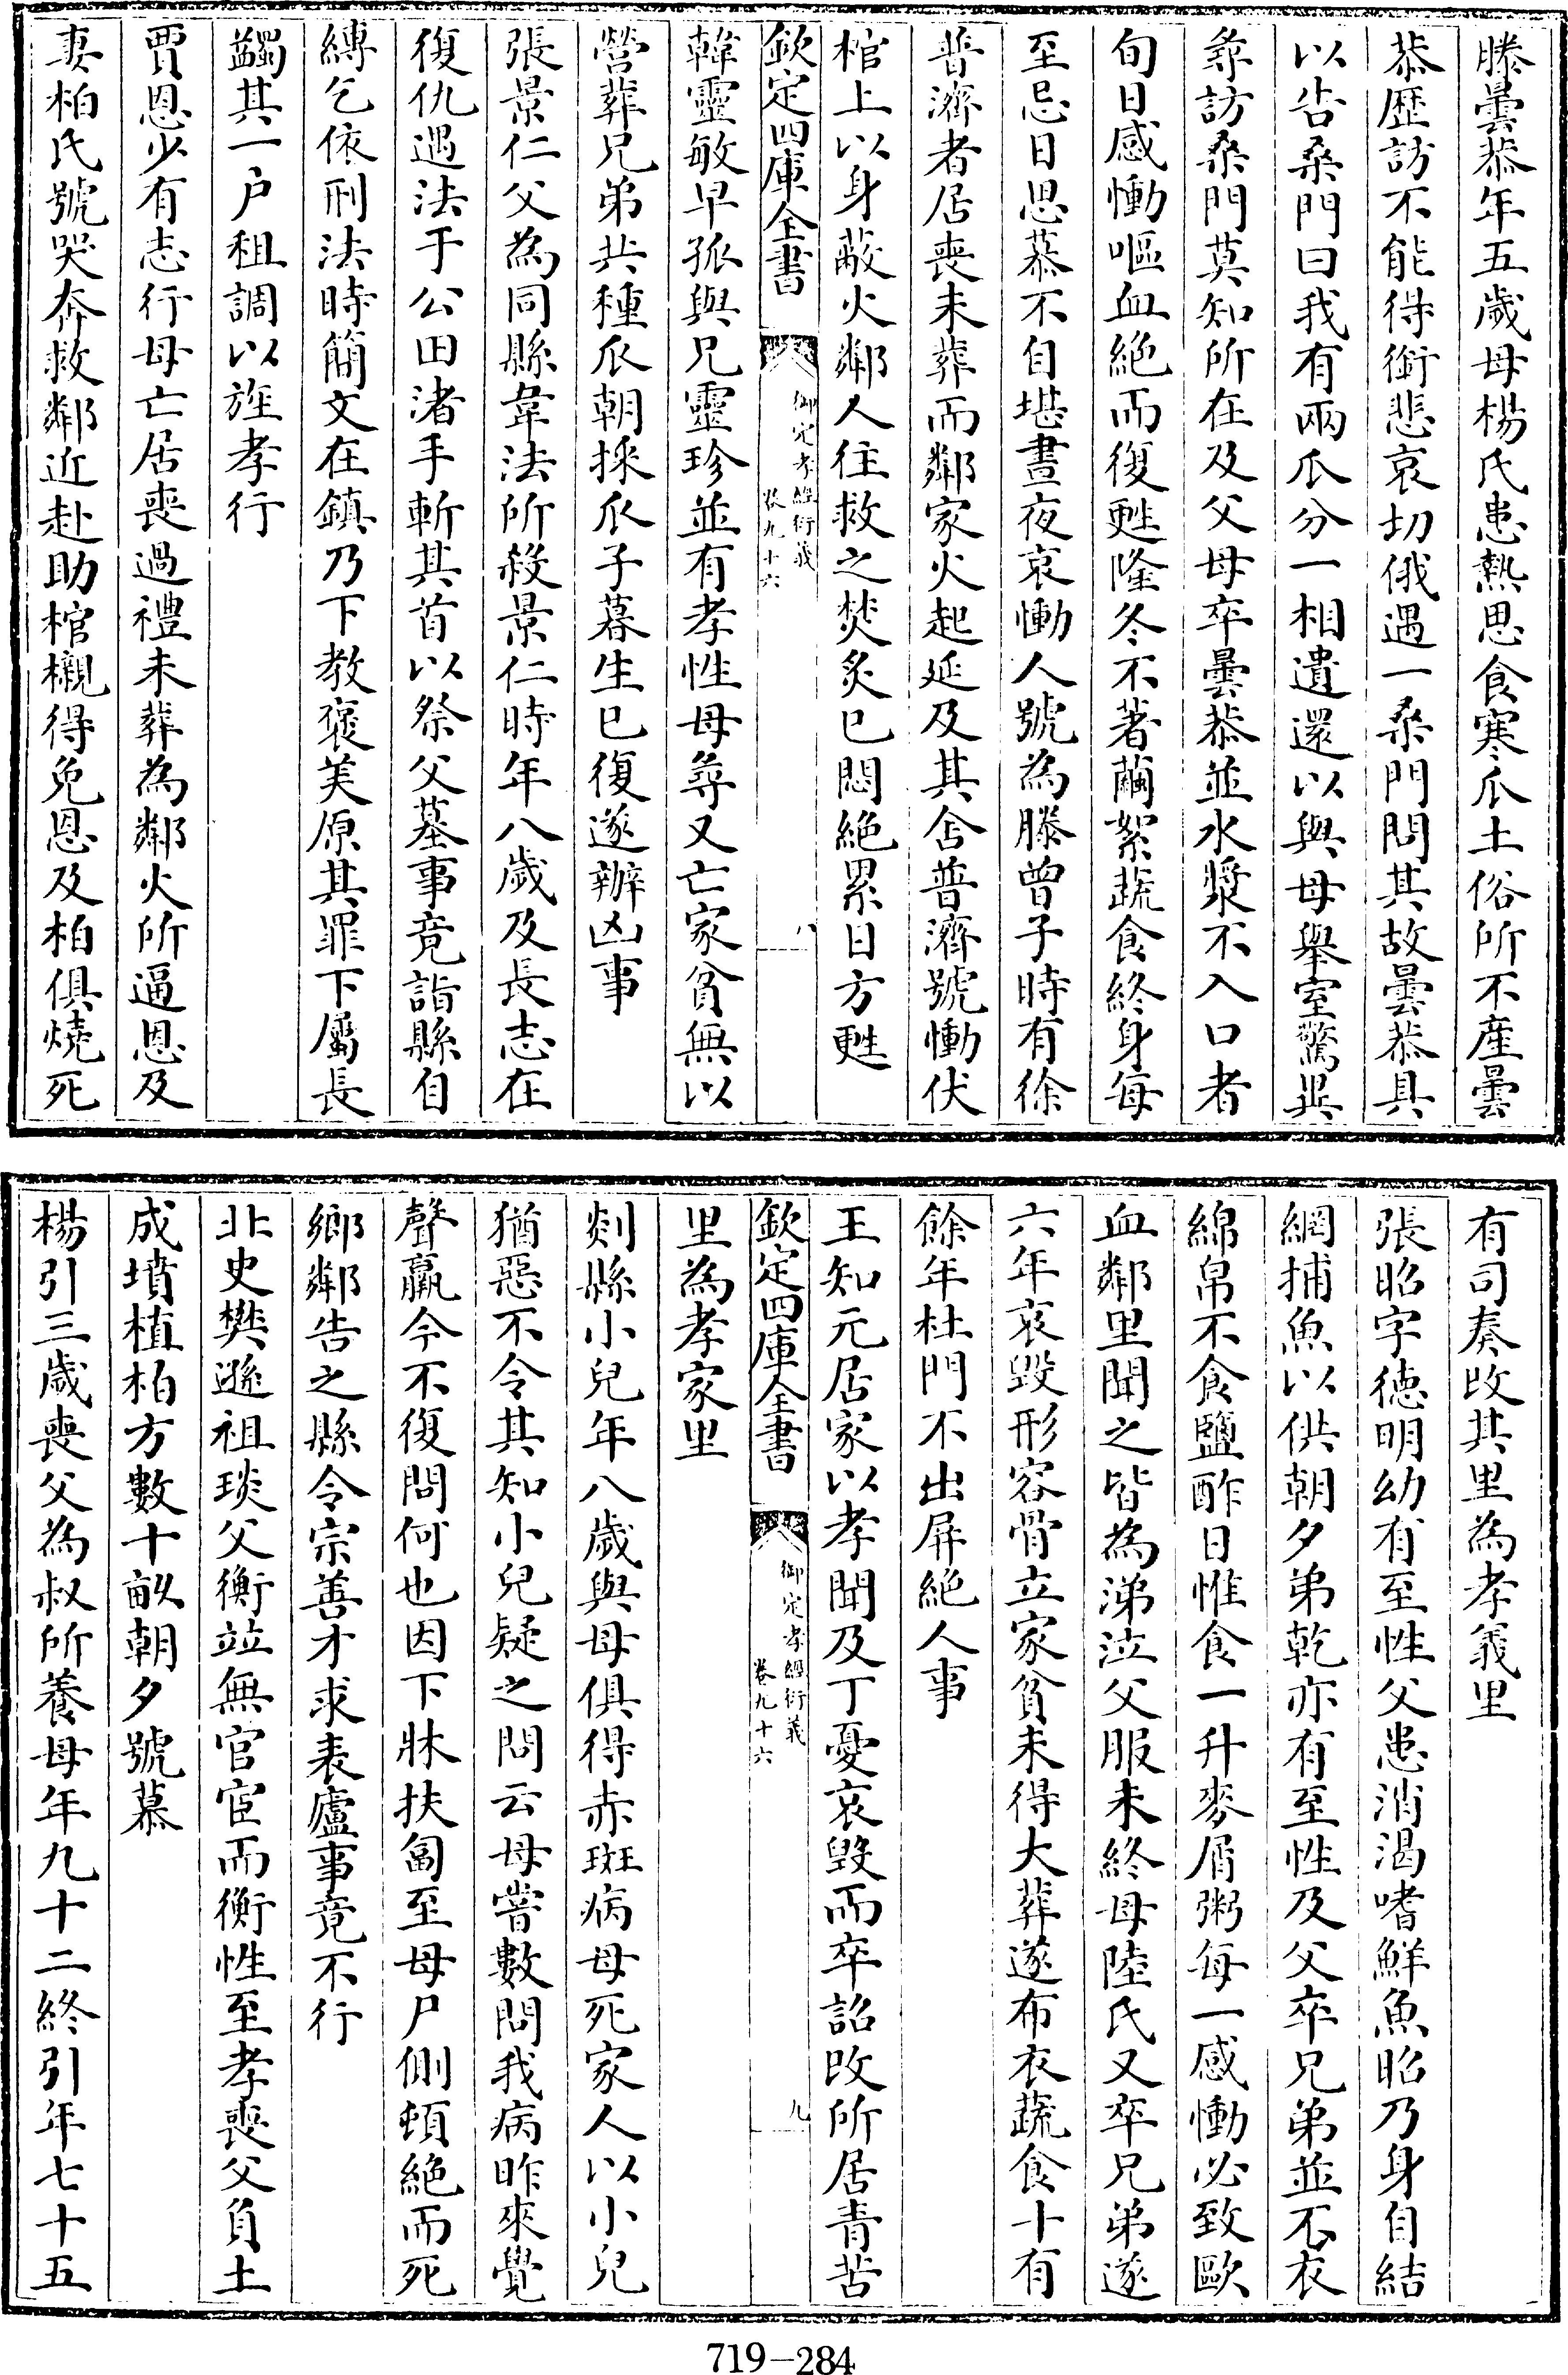 滕曇恭年五歲母楊氏患熱思食寒瓜土俗所不産曇
恭歴訪不能得銜悲哀切俄遇一桑門問其故曇恭具
以告桑門曰我有兩瓜分一相遺還以與母舉室驚異
尋訪桑門莫知所在及父母卒曇恭並水漿不入口者
旬日感慟嘔血絶而復甦隆冬不著繭絮蔬食終身每
至忌日思慕不自堪晝夜哀慟人號為滕曾子時有徐
普濟者居喪未葬而鄰家火起延及其舍普濟號慟伏
棺上以身蔽火鄰人往救之焚炙已悶絶累日方甦
欽定四庫全書 御定孝經衍義 卷九十六 八
韓靈敏早孤與兄靈珍並有孝性母尋又亡家貧無以
營葬兄弟共種瓜朝採瓜子暮生已復遂辦凶事
張景仁父為同縣韋法所殺景仁時年八歲及長志在
復仇遇法于公田渚手斬其首以祭父墓事竟詣縣自
縛乞依刑法時簡文在鎮乃下教褒美原其罪下屬長
蠲其一户租調以旌孝行
賈恩少有志行母亡居喪過禮未葬為鄰火所逼恩及
妻柏氏號哭奔救鄰近赴助棺櫬得免恩及柏俱燒死
有司奏改其里為孝義里
張昭字徳明幼有至性父患消渴嗜鮮魚昭乃身自結
網捕魚以供朝夕弟乾亦有至性及父卒兄弟並不衣
綿帛不食鹽酢日惟食一升麥屑粥每一感慟必致歐
血鄰里聞之皆為涕泣父服未終母陸氏又卒兄弟遂
六年哀毀形容骨立家貧未得大葬遂布衣蔬食十有
餘年杜門不出屏絶人事
王知元居家以孝聞及丁憂哀毀而卒詔改所居青苦
欽定四庫全書 御定孝經衍義 卷九十六 九
里為孝家里
剡縣小兒年八歲與母俱得赤斑病母死家人以小兒
猶惡不令其知小兒疑之問云母嘗數問我病昨來覺
聲羸今不復問何也因下牀扶匐至母尸側頓絶而死
鄉鄰告之縣令宗善才求表廬事竟不行
北史樊遜祖琰父衡竝無官宦而衡性至孝喪父負土
成墳植柏方數十畝朝夕號慕
楊引三歲喪父為叔所養母年九十二終引年七十五
719-284